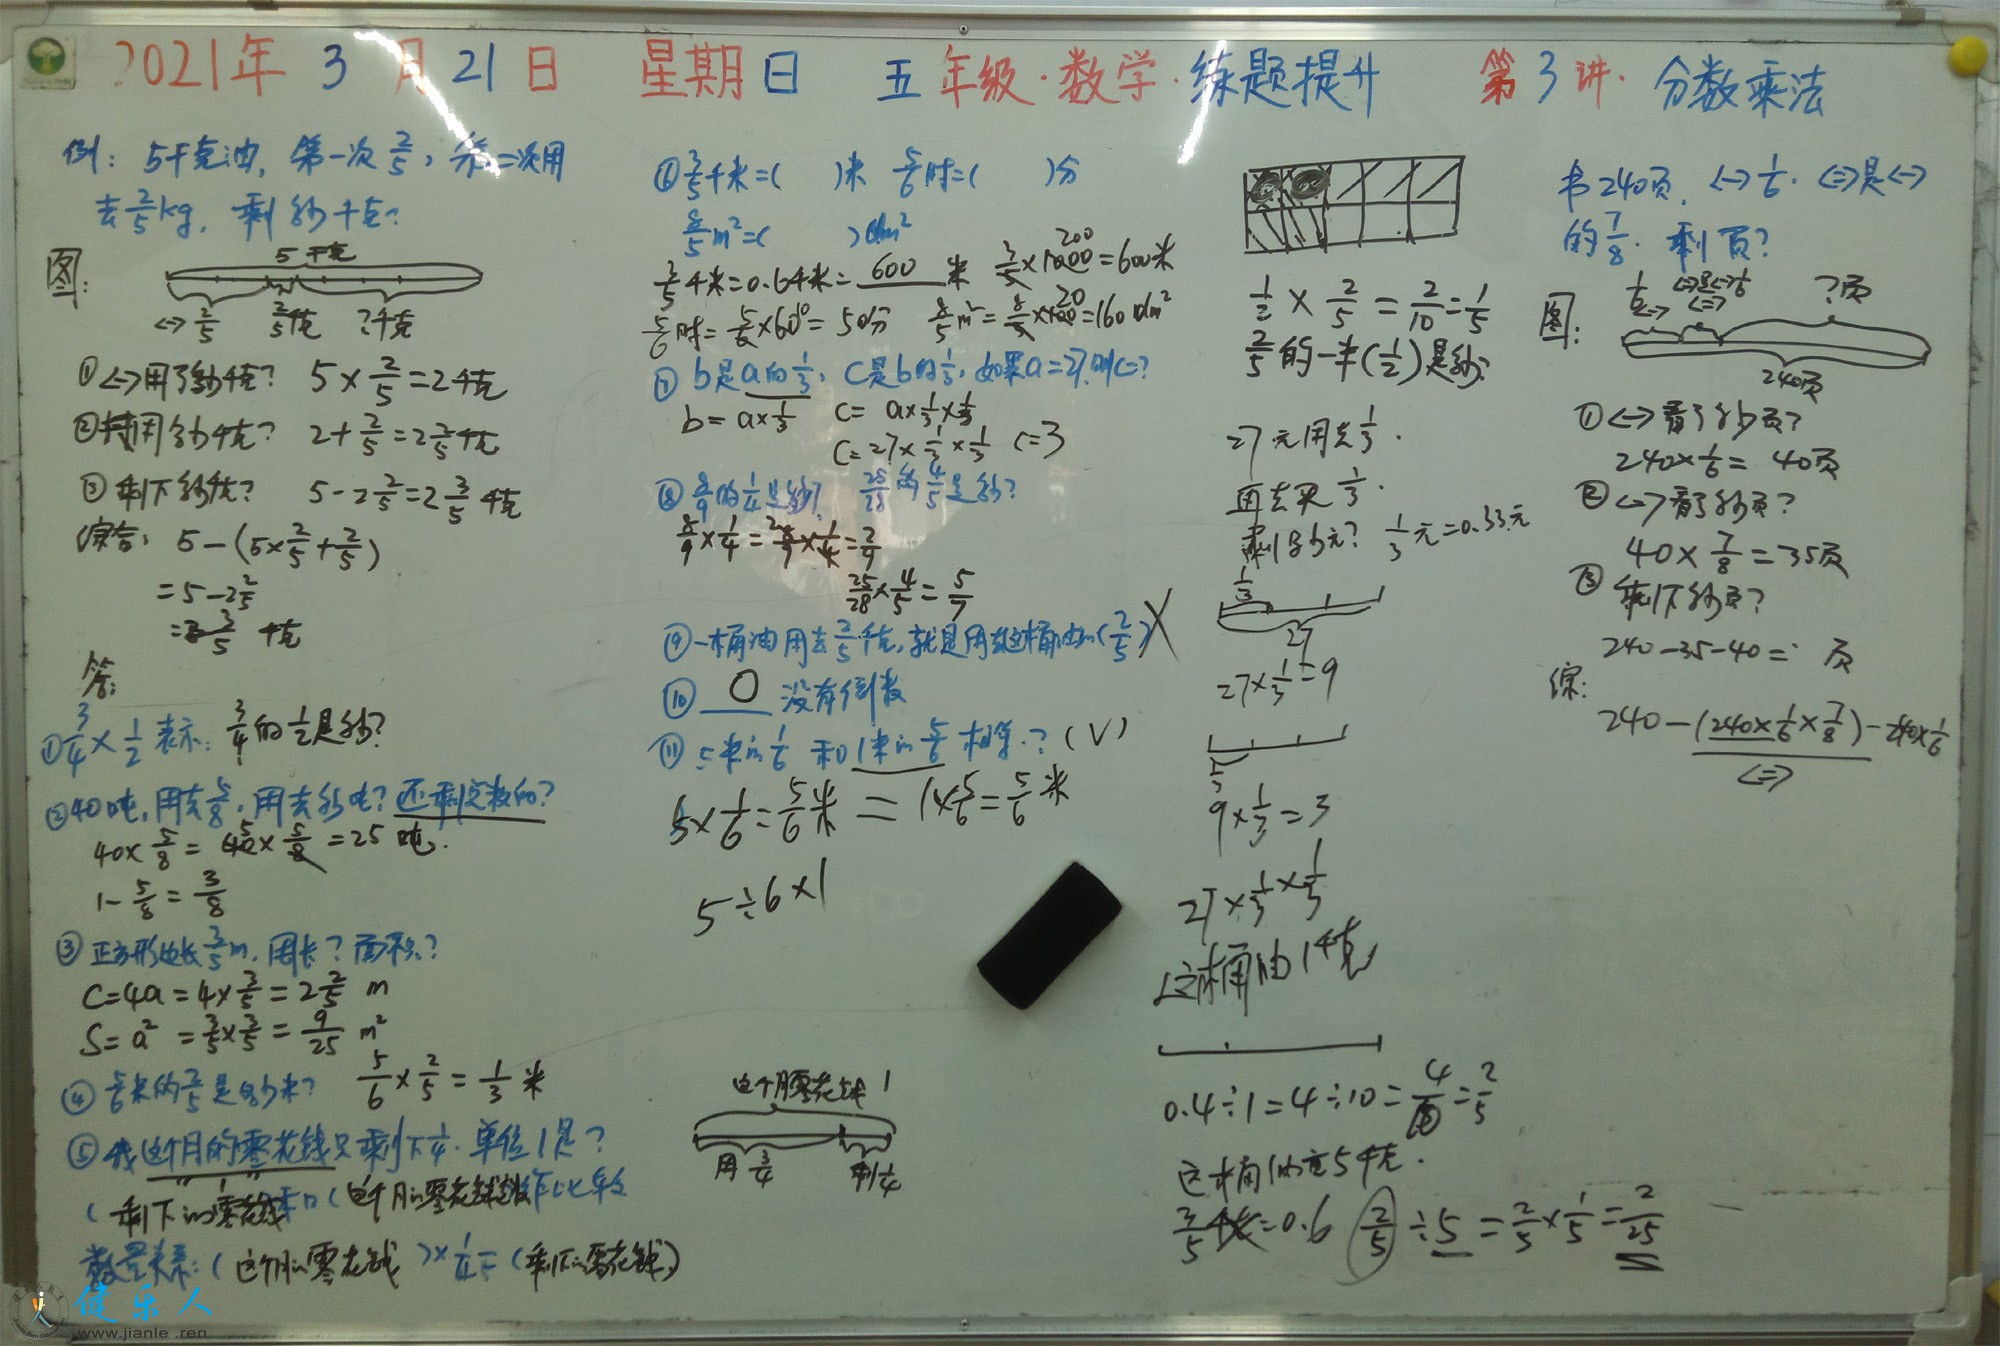 2021年 3月21日 星期日 五年级·数学·练题提升 第3讲·分数乘法
例: 5千克油, 第一次2/5, 第二次用
去2/5kg, 剩多少千克?
图:
5千克
<一>2/5 2/5千克 ?千克
①<一>用了多少千克? 5×2/5=2千克
②共用多少千克? 2+2/5=2 2/5千克
③剩下多少千克? 5-2 2/5=2 3/5千克
综合: 5-(5×2/5+2/5)
=5-2 2/5
=2 3/5 千克
答:
①3/4×1/2 表示: 3/4的1/2是多少?
②40吨, 用去5/8, 用去多少吨? 还剩几分之几?
40×5/8=40×5/8=25 吨.
1-5/8=3/8
③正方形边长3/5m, 周长? 面积?
C=4a=4×3/5=2 2/5 m
S=a²=3/5×3/5=9/25 m²
④5/6米的2/5是多少米? 5/6×2/5=1/3 米
⑤我这个月的零花钱只剩下1/4. 单位1是?
(剩下的零花钱)和(这个月的零花钱)作比较
数量关系:(这个月的零花钱)×1/4=(剩下的零花钱)
⑥3/5千米=( )米 5/6时=( )分
8/5m²=( )dm²
3/5千米=0.6千米=600米 3/5×1000=600米
200
5/6时=5/6×60=50分 8/5m²=8/5×100=160dm²
10 20
⑦b是a的1/3, c是b的1/3, 如果a=27, 则c=?
b=a×1/3 c=a×1/3×1/3
c=27×1/3×1/3 c=3
⑧8/9的1/4是多少? 25/28的4/5是多少?
8/9×1/4=8/9×1/4=2/9
25/28×4/5=5/7
⑨一桶油用去2/5千克, 就是用去这桶油的(2/5) ×
⑩ 0 没有倒数
⑪5米的1/6和1米的5/6相等.?(√)
5×1/6=5/6米=1×5/6=5/6米
5÷6×1
这个月零花钱 1
用3/4 剩1/4
1/2×2/5=2/10=1/5
2/5的一半(1/2)是多少?
27元用去1/3.
再去买1/3.
剩多少元? 1/3元=0.33元
1/3
27
27×1/3=9
1/3
9×1/3=3
27×1/3×1/3
这桶油1千克
0.4÷1=4÷10=4/10=2/5
这桶油重5千克.
3/5千克=0.6 2/5÷5=2/5×1/5=2/25
书240页, <一>1/6. <二>是<一>
的7/8. 剩?页?
图:
1/6 <一> <二> ?页
240页
①<一>看了多少页?
240×1/6=40页
②<二>看了多少页?
40×7/8=35页
③剩下多少页?
240-35-40= 页
综:
240-(240×1/6×7/8)-240×1/6
<二>
健乐人
www.jianle.ren